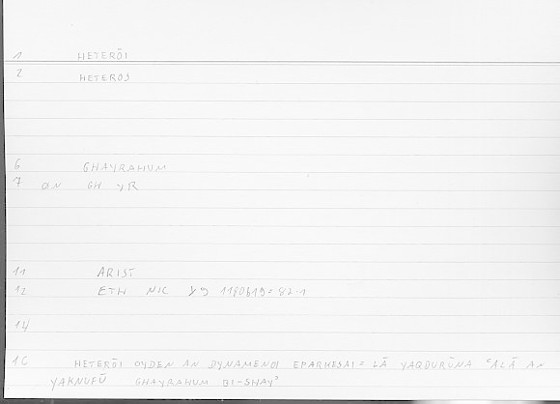 1 HETERŌI
2 HETEROS
6 GHAYRAHUM
7 ON GH YR
11 ARIST
12 ETH NIC 1180b19=82.1
14
16 HETERŌI OYDEN AN DYNAMENOI EPARKESAI = LĀ YAQDURŪNA ʿALĀ AN
YAKNUFŪ GHAYRAHUM BI-SHAYʾ